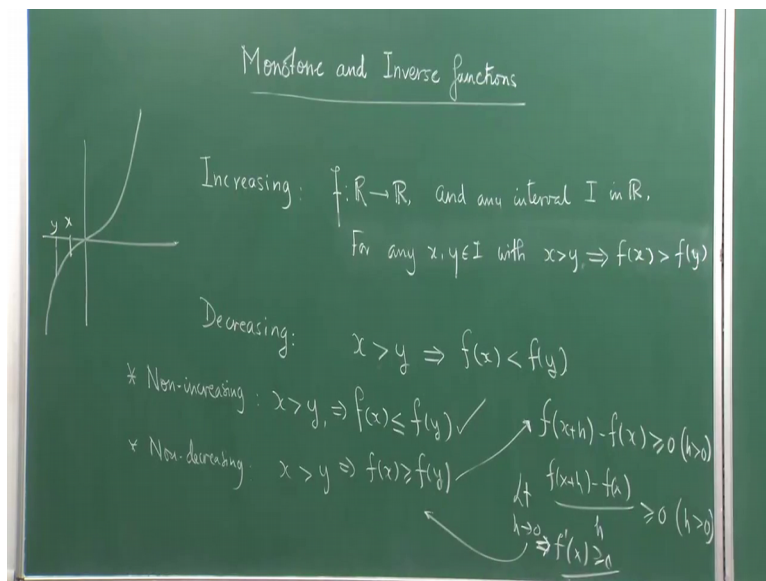 Monotone and Inverse functions
Increasing: f: ℝ → ℝ, and any interval I in ℝ,
y x
For any x, y ∈ I with x>y, ⇒ f(x) > f(y)
Decreasing:
x > y ⇒ f(x) < f(y)
* Non-increasing: x>y, ⇒ f(x) ≤ f(y) ✓
* Non-decreasing. x > y ⇒ f(x) ≥ f(y)
f(x+h) - f(x) ≥ 0 (h>0)
Lt h→0 f(x+h) - f(x) / h ≥ 0 (h>0)
⇒ f'(x) ≥ 0